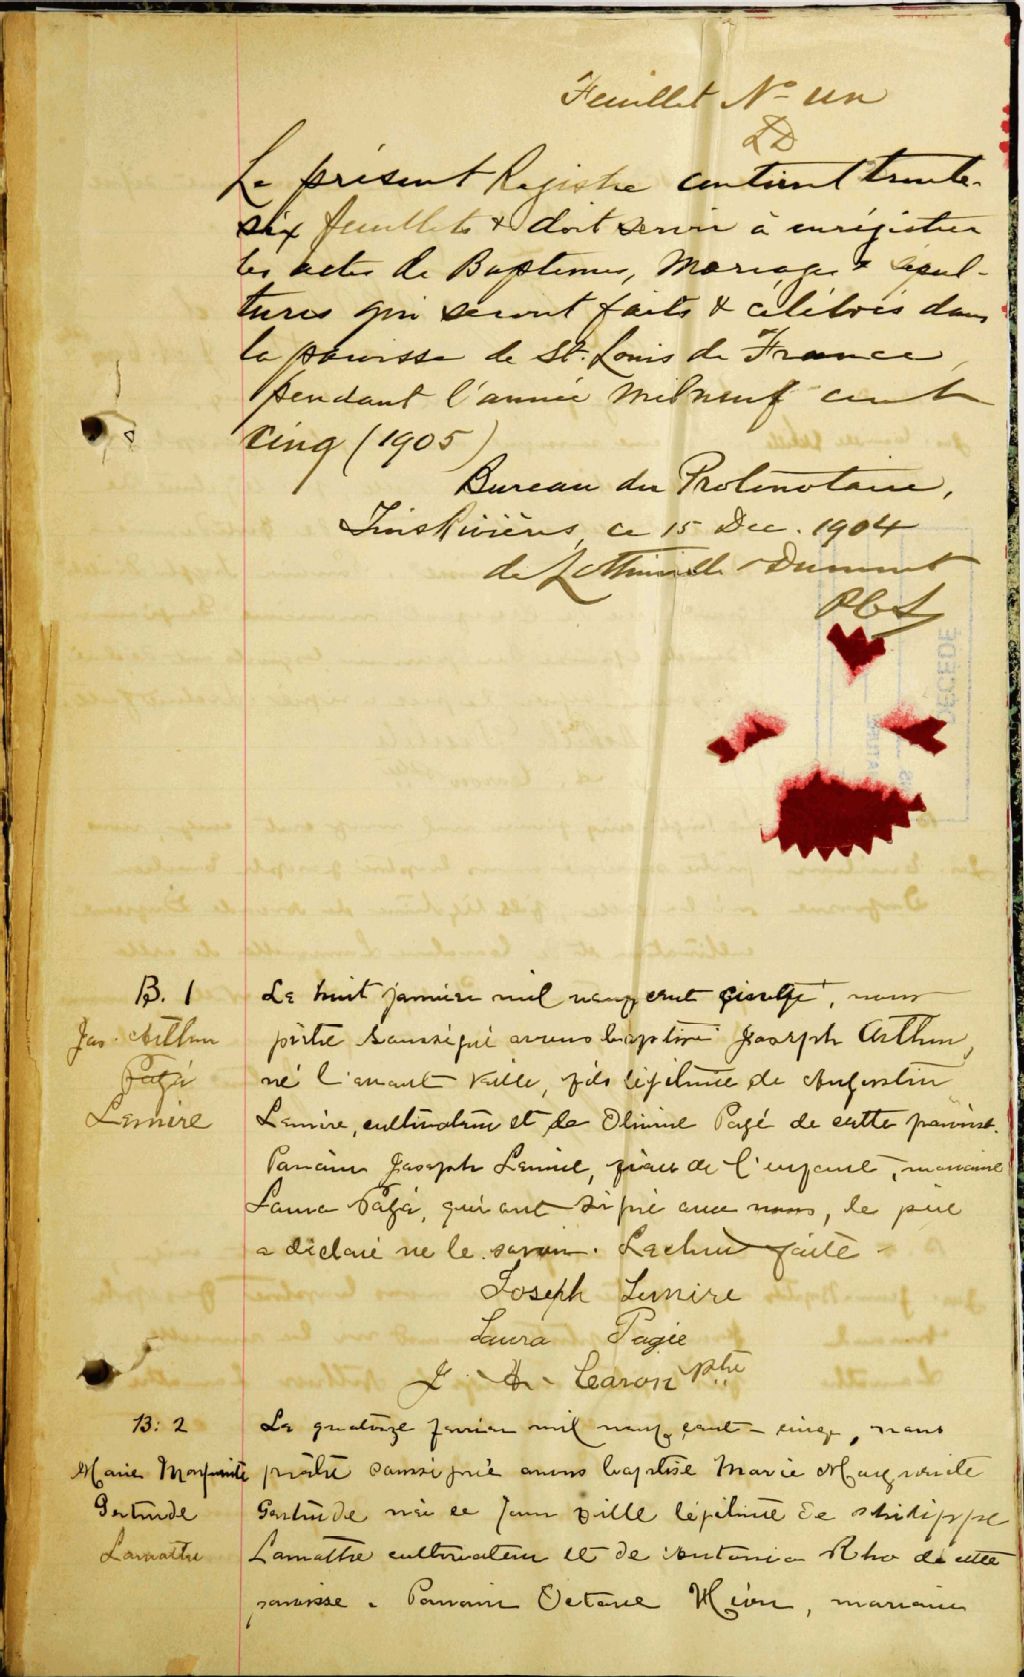 Feuillet No un
LD
Le présent Registre contient trente-
six feuillets & doit servir à enrégistrer
les actes de Baptemes, Mariages & sépul-
tures qui seront faits & célébrés dans
la paroisse de St. Louis de France,
pendant l'année mil neuf cent
cinq (1905)
Bureau du Protonotaire,
Trois Rivières, ce 15 Dec. 1904
de Lottinville Dumont
P C S
B. 1
Jos. Arthur
Pagé
Lemire
Le huit janvier mil neuf cent cinq, nous
prêtre soussigné avons baptisé Joseph Arthur,
né l'avant veille, fils légitime de Augustin
Lemire, cultivateur et de Olivine Pagé de cette paroisse.
Parrain Joseph Lemire, frère de l'enfant, marraine
Laura Pagé, qui ont signé avec nous, le père
a déclaré ne le savoir. Lecture faite.
Joseph Lemire
Laura Pagée
J. D. Caron Ptre
B: 2
Marie Marguerite
Gertrude
Lamothe
Le quatorze janvier mil neuf cent-cinq, nous
prêtre soussigné avons baptisé Marie Marguerite
Gertrude née ce jour fille légitime de Philippe
Lamothe cultivateur et de Antonia Rho de cette
paroisse. Parrain Octave, marraine